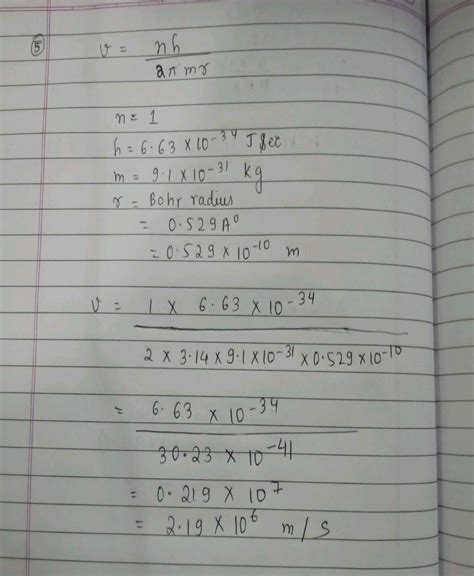 5 v = nh
2π mr
n = 1
h = 6.63 × 10⁻³⁴ J Sec
m = 9.1 × 10⁻³¹ kg
r = Bohr radius
= 0.529 A⁰
= 0.529 × 10⁻¹⁰ m
v = 1 × 6.63 × 10⁻³⁴
2 × 3.14 × 9.1 × 10⁻³¹ × 0.529 × 10⁻¹⁰
= 6.63 × 10⁻³⁴
30.23 × 10⁻⁴¹
= 0.219 × 10⁷
= 2.19 × 10⁶ m/s